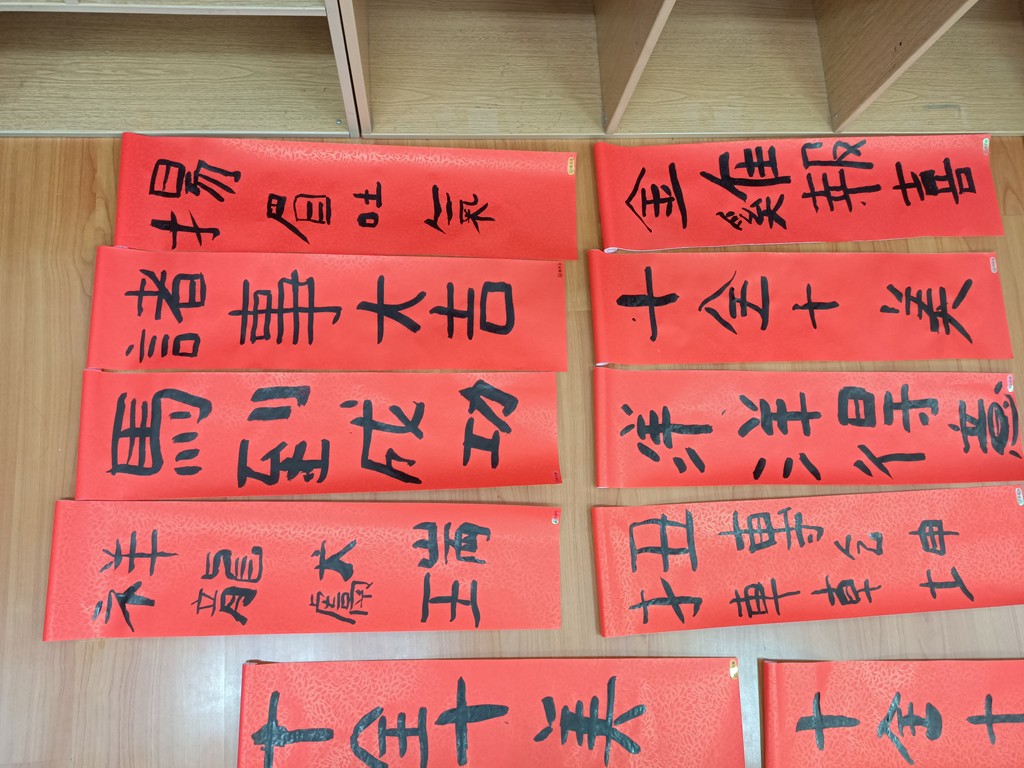 揚眉吐氣
金雞報喜
諸事大吉
十全十美
馬到成功
洋洋得意
祥龍獻瑞
扭轉乾坤
十全十美
十全十